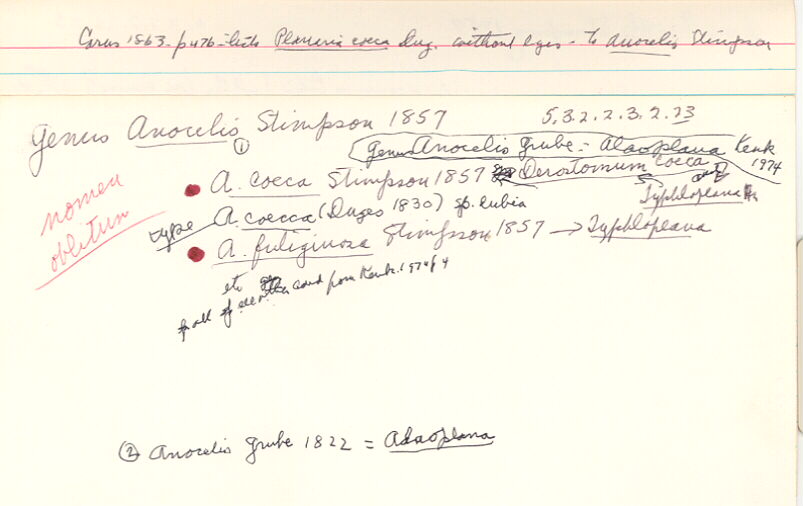 Carus 1863 - p 476 - lists Planaria coeca Dug. without eyes - to Anocelis Stimpson
Genus Anocelis Stimpson 1857 5, 3. 2. 2. 3. 2. 73
①
Genus Anocelis Grube = Alaoplana Kenk
1974
• A. coeca Stimpson 1857 Derostomum coeca
Typhloplana
nomen
oblitum
type A. coecca (Duges 1830) sp. dubia
• A. fuliginosa Stimpson 1857 → Typhloplana
etc
for all of card from Kenk 1974 p 4
② Anocelis Grube 1822 = Alaoplana